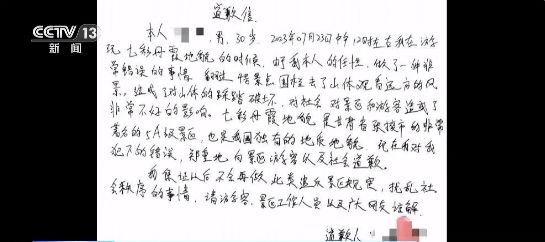 CCTV 13
新闻
道歉信
本人 男, 30岁. 2023年07月23日中午12时左右我在游
玩七彩丹霞地貌的时候, 由于我本人的任性, 做了一种非
常错误的事情. 翻过 景点围栏去了山体观看远方的风
景, 造成了对山体的踩踏破坏, 对社会对景区和游客造成了
非常不好的影响. 七彩丹霞地貌是甘肃省张掖市的非常
著名的5A级景区, 也是我国独有的地质地貌. 现在我对我
犯下的错误, 郑重地向景区游客以及社会道歉.
我保证以后不会再做此类违反景区规定, 扰乱社
会秩序的事情. 请游客、景区工作人员以及广大网友谅解.
道歉人